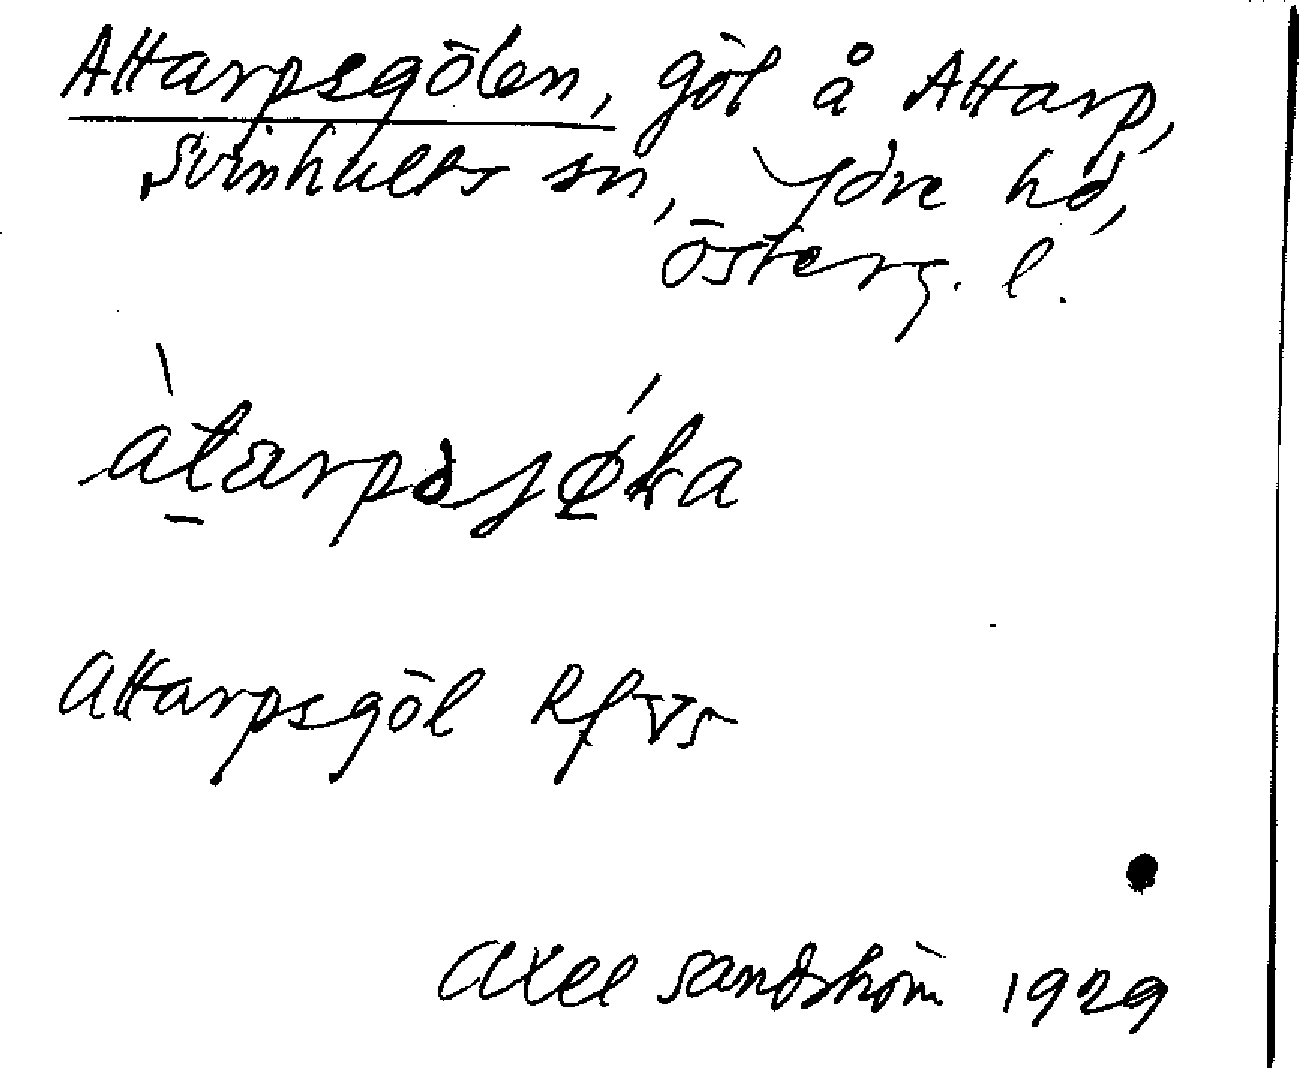 Attarpsgölen, göl å Attarp,
Svinhults sn, Ydre hd,
Österg. l.
Attarpsgöl Rf vs
Axel Sandström 1929